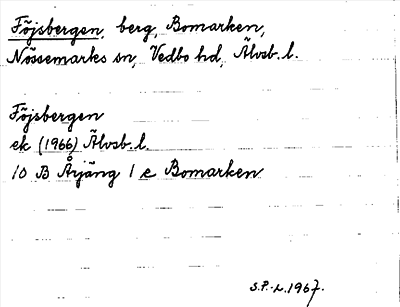 Föjsbergen, berg, Bomarken,
Nössemarks sn, Vedbo hd, Älvsb. l.
Föjsbergen
ek (1966) Älvsb. l.
10 B Årjäng 1 e Bomarken
S.P.-L. 1967.